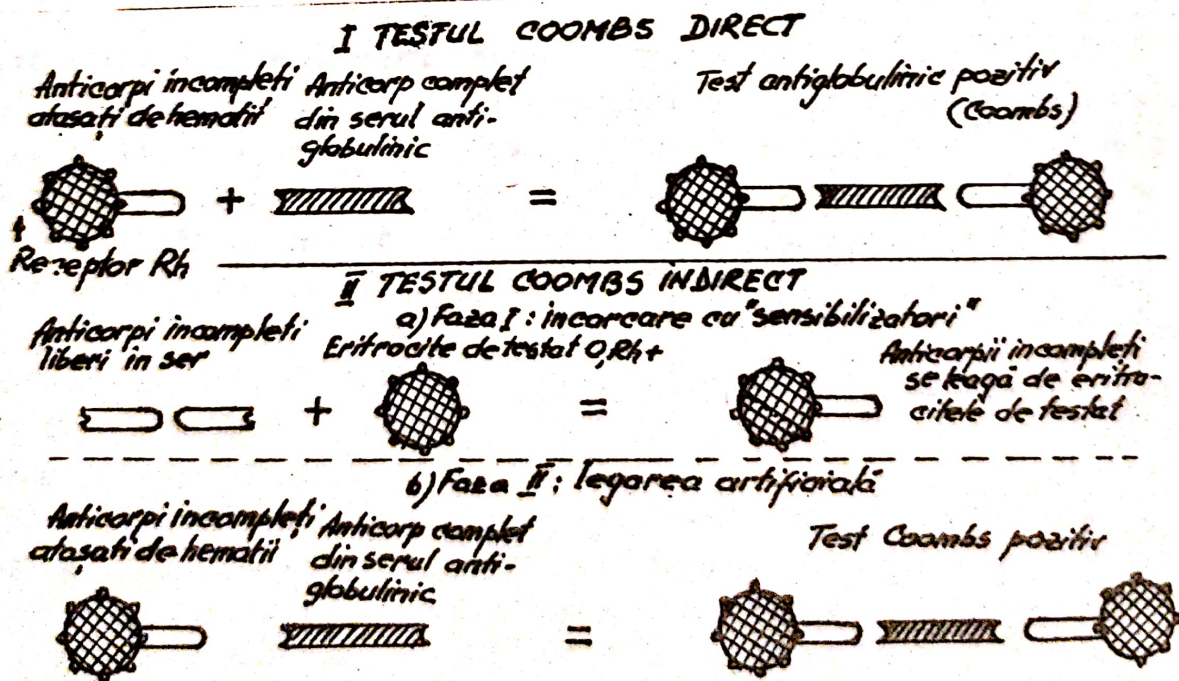 I TESTUL COOMBS DIRECT
Anticorpi incompleți
atașați de hematii
Anticorp complet
din serul anti-
globulinic
Test antiglobulinic pozitiv
(Coombs)
+
=
Receptor Rh
II TESTUL COOMBS INDIRECT
a) Faza I : incarcare cu "sensibilizatori"
Anticorpi incompleti
liberi in ser
Eritrocite de testat O,Rh+
Anticorpii incompleți
se leagă de eritro-
citele de testat
+
=
b) Faza II : legarea artificială
Anticorpi incompleți
atașați de hematii
Anticorp complet
din serul anti-
globulinic
Test Coombs pozitiv
=